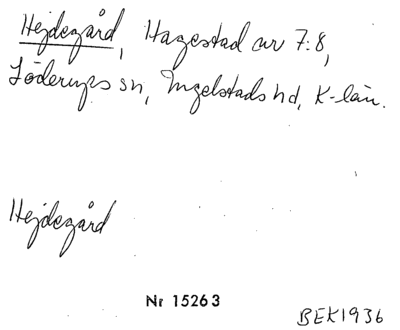 Hejdegård, Hagestad nr 7:8,
Löderups sn, Ingelstads hd, K-län.
Hejdegård
Nr 15263
BEK1936